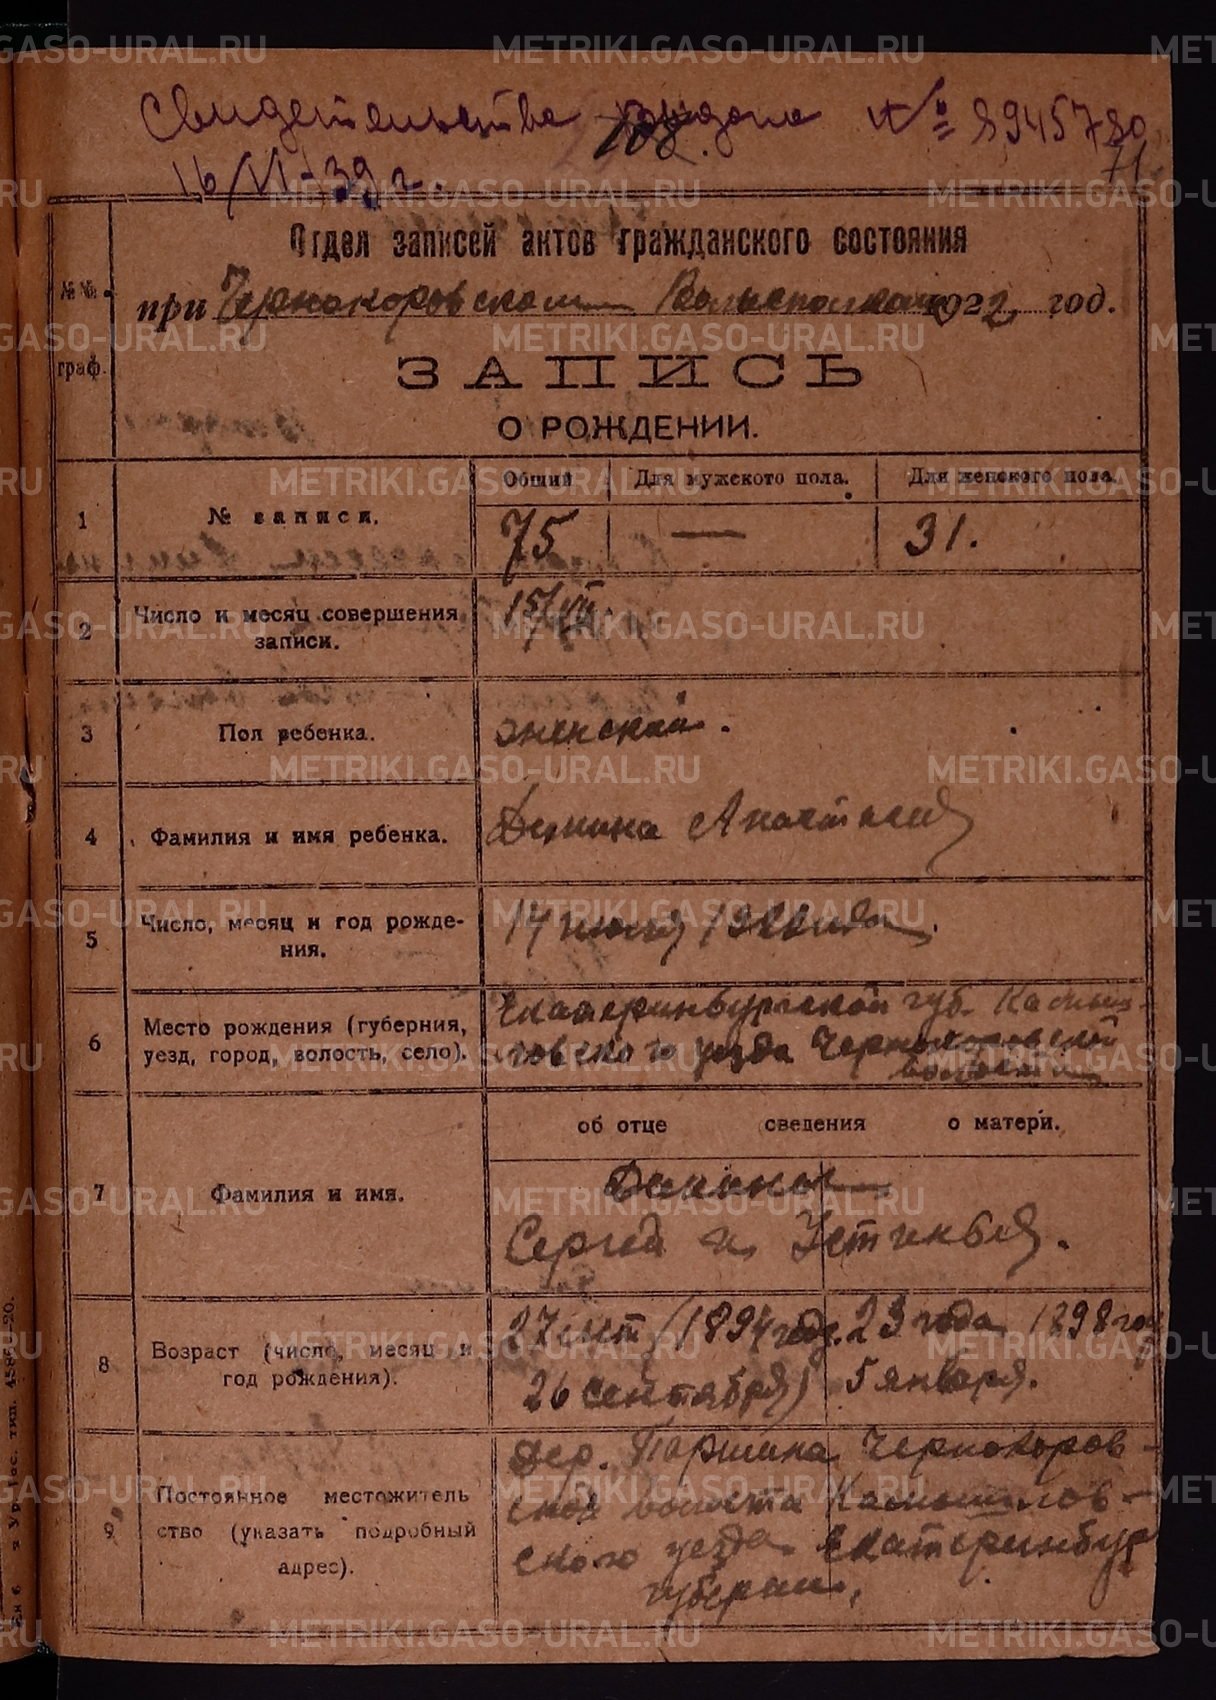 Свидетельство выдано № 8945780
108.
71
16/VI-39 г.
Отдел записей актов гражданского состояния
№№
граф.
при Чернокоровском Волисполкоме 1922 год.
ЗАПИСЬ
О РОЖДЕНИИ.
1 № записи.
Общий Для мужского пола. Для женского пола.
75 — 31.
2 Число и месяц совершения
записи.
15/VII.
3 Пол ребенка. женский.
4 Фамилия и имя ребенка. Демина Анастасия
5 Число, месяц и год рожде-
ния.
14 1922 года.
6 Место рождения (губерния,
уезд, город, волость, село).
Екатеринбургской губ. Камыш-
ловского уезда Чернокоровской
волости
об отце сведения о матери.
7 Фамилия и имя.
Демины
Сергей и Устинья.
8 Возраст (число, месяц и
год рождения).
27 лет (1894 года. 23 года 1898 год
26 сентября) 5 января.
9 Постоянное местожитель
ство (указать подробный
адрес).
дер. Паршина Чернокоров-
ской волости Камышлов-
ского уезда Екатеринбур
губернии.
METRIKI.GASO-URAL.RU